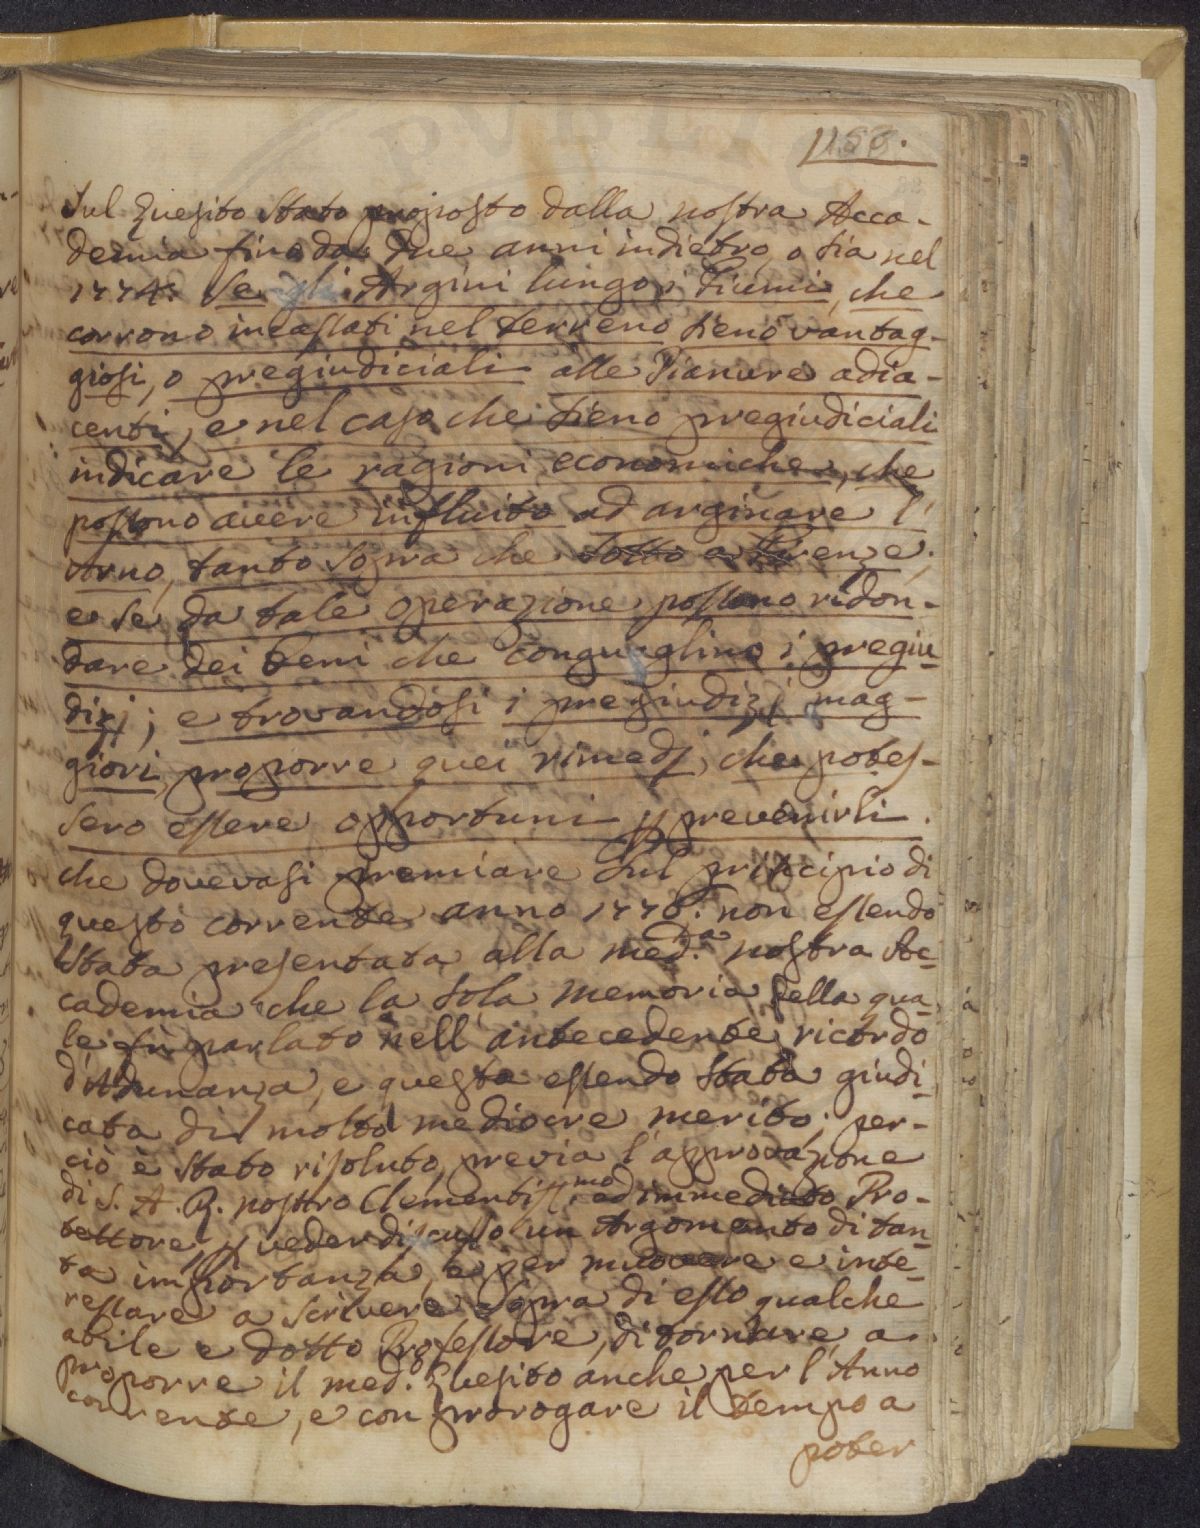 158.
Sul Quesito stato proposto dalla nostra Acca-
demia fino da due anni indietro, o sia nel
1774: Se gli Argini lungo i Fiumi, che
corrono incassati nel terreno sieno vantag-
giosi, o pregiudiciali alle Pianure adia-
centi, e nel caso che sieno pregiudiciali
indicare le ragioni economiche, che
possono avere influito ad arginare l'
Arno, tanto sopra che sotto a Firenze,
e se da tale operazione possano ridon-
dare dei beni che conguaglino i pregiu-
dizj; e trovandosi i pregiudizj mag-
giori, proporre quei rimedj, che potes-
sero essere opportuni p prevenirli.
che dovevasi premiare sul principio di
questo corrente anno 1776: non essendo
stata presentata alla med.ma nostra Ac-
cademia che la sola memoria della qua-
le fu parlato nell'antecedente ricordo
d'Adunanza, e questa essendo stata giudi-
cata di molto mediocre merito; per-
ciò è stato risoluto, previa l'approvazione
di S. A. R. nostro Clementiss.mo ed immediato Pro-
tettore, p veder discusso un Argomento di tan-
ta importanza, e per muovere e inte-
ressare a scrivere sopra di esso qualche
abile e dotto Professore, di tornare a
proporre il med.o Quesito anche per l'Anno
corrente, e con prorogare il tempo a
poter